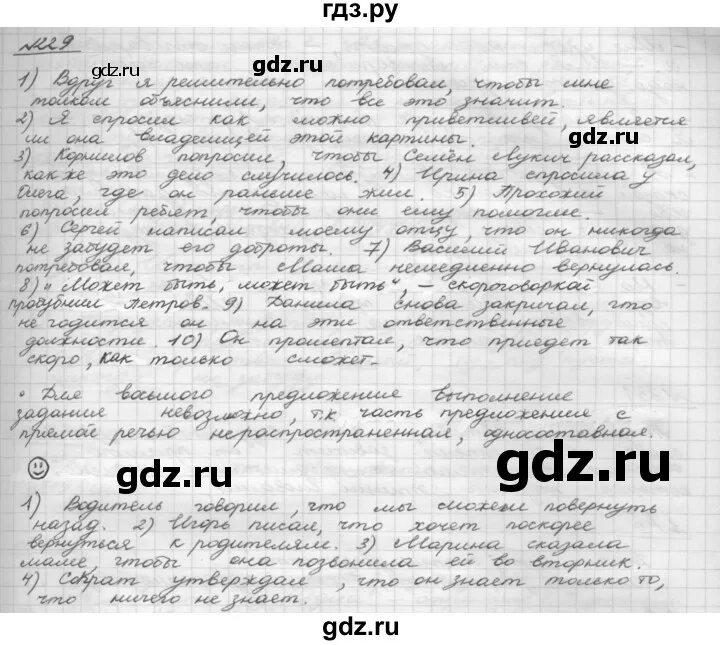 гдз.ру
№229
1) Вдруг я решительно потребовал, чтобы мне
толком объяснили, что все это значит.
2) Я спросил как можно приветливей, является
ли она владелицей этой картины.
3) Корнилов попросил, чтобы Семён Лукич рассказал,
как же это дело случилось. 4) Ирина спросила у
Олега, где он раньше жил. 5) Прохожий
попросил ребят, чтобы они ему помогли.
6) Сергей написал моему отцу, что он никогда
не забудет его доброты. 7) Василий Иванович
потребовал, чтобы Маша немедленно вернулась.
8) „Может быть, может быть“, – скороговоркой
пробубнил Петров. 9) Данила снова закричал, что
не годится он на эти ответственные
должности. 10) Он прошептал, что приедет так
скоро, как только сможет.
• Для восьмого предложения выполнение
задания невозможно, т.к часть предложения с
прямой речью нераспространенная, односоставная.
gdz.ru gdz.ru
gdz.ru
1) Водитель говорил, что мы можем повернуть
назад. 2) Игорь писал, что хочет поскорее
вернуться к родителям. 3) Марина сказала
маме, чтобы она позвонила ей во вторник.
4) Сократ утверждал, что он знает только то,
что ничего не знает.
gdz.ru